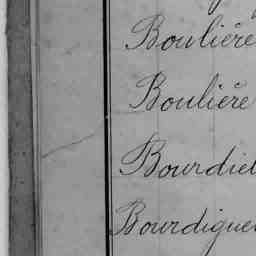 Boulière
Boulière
Bourdiel
Bourdigue